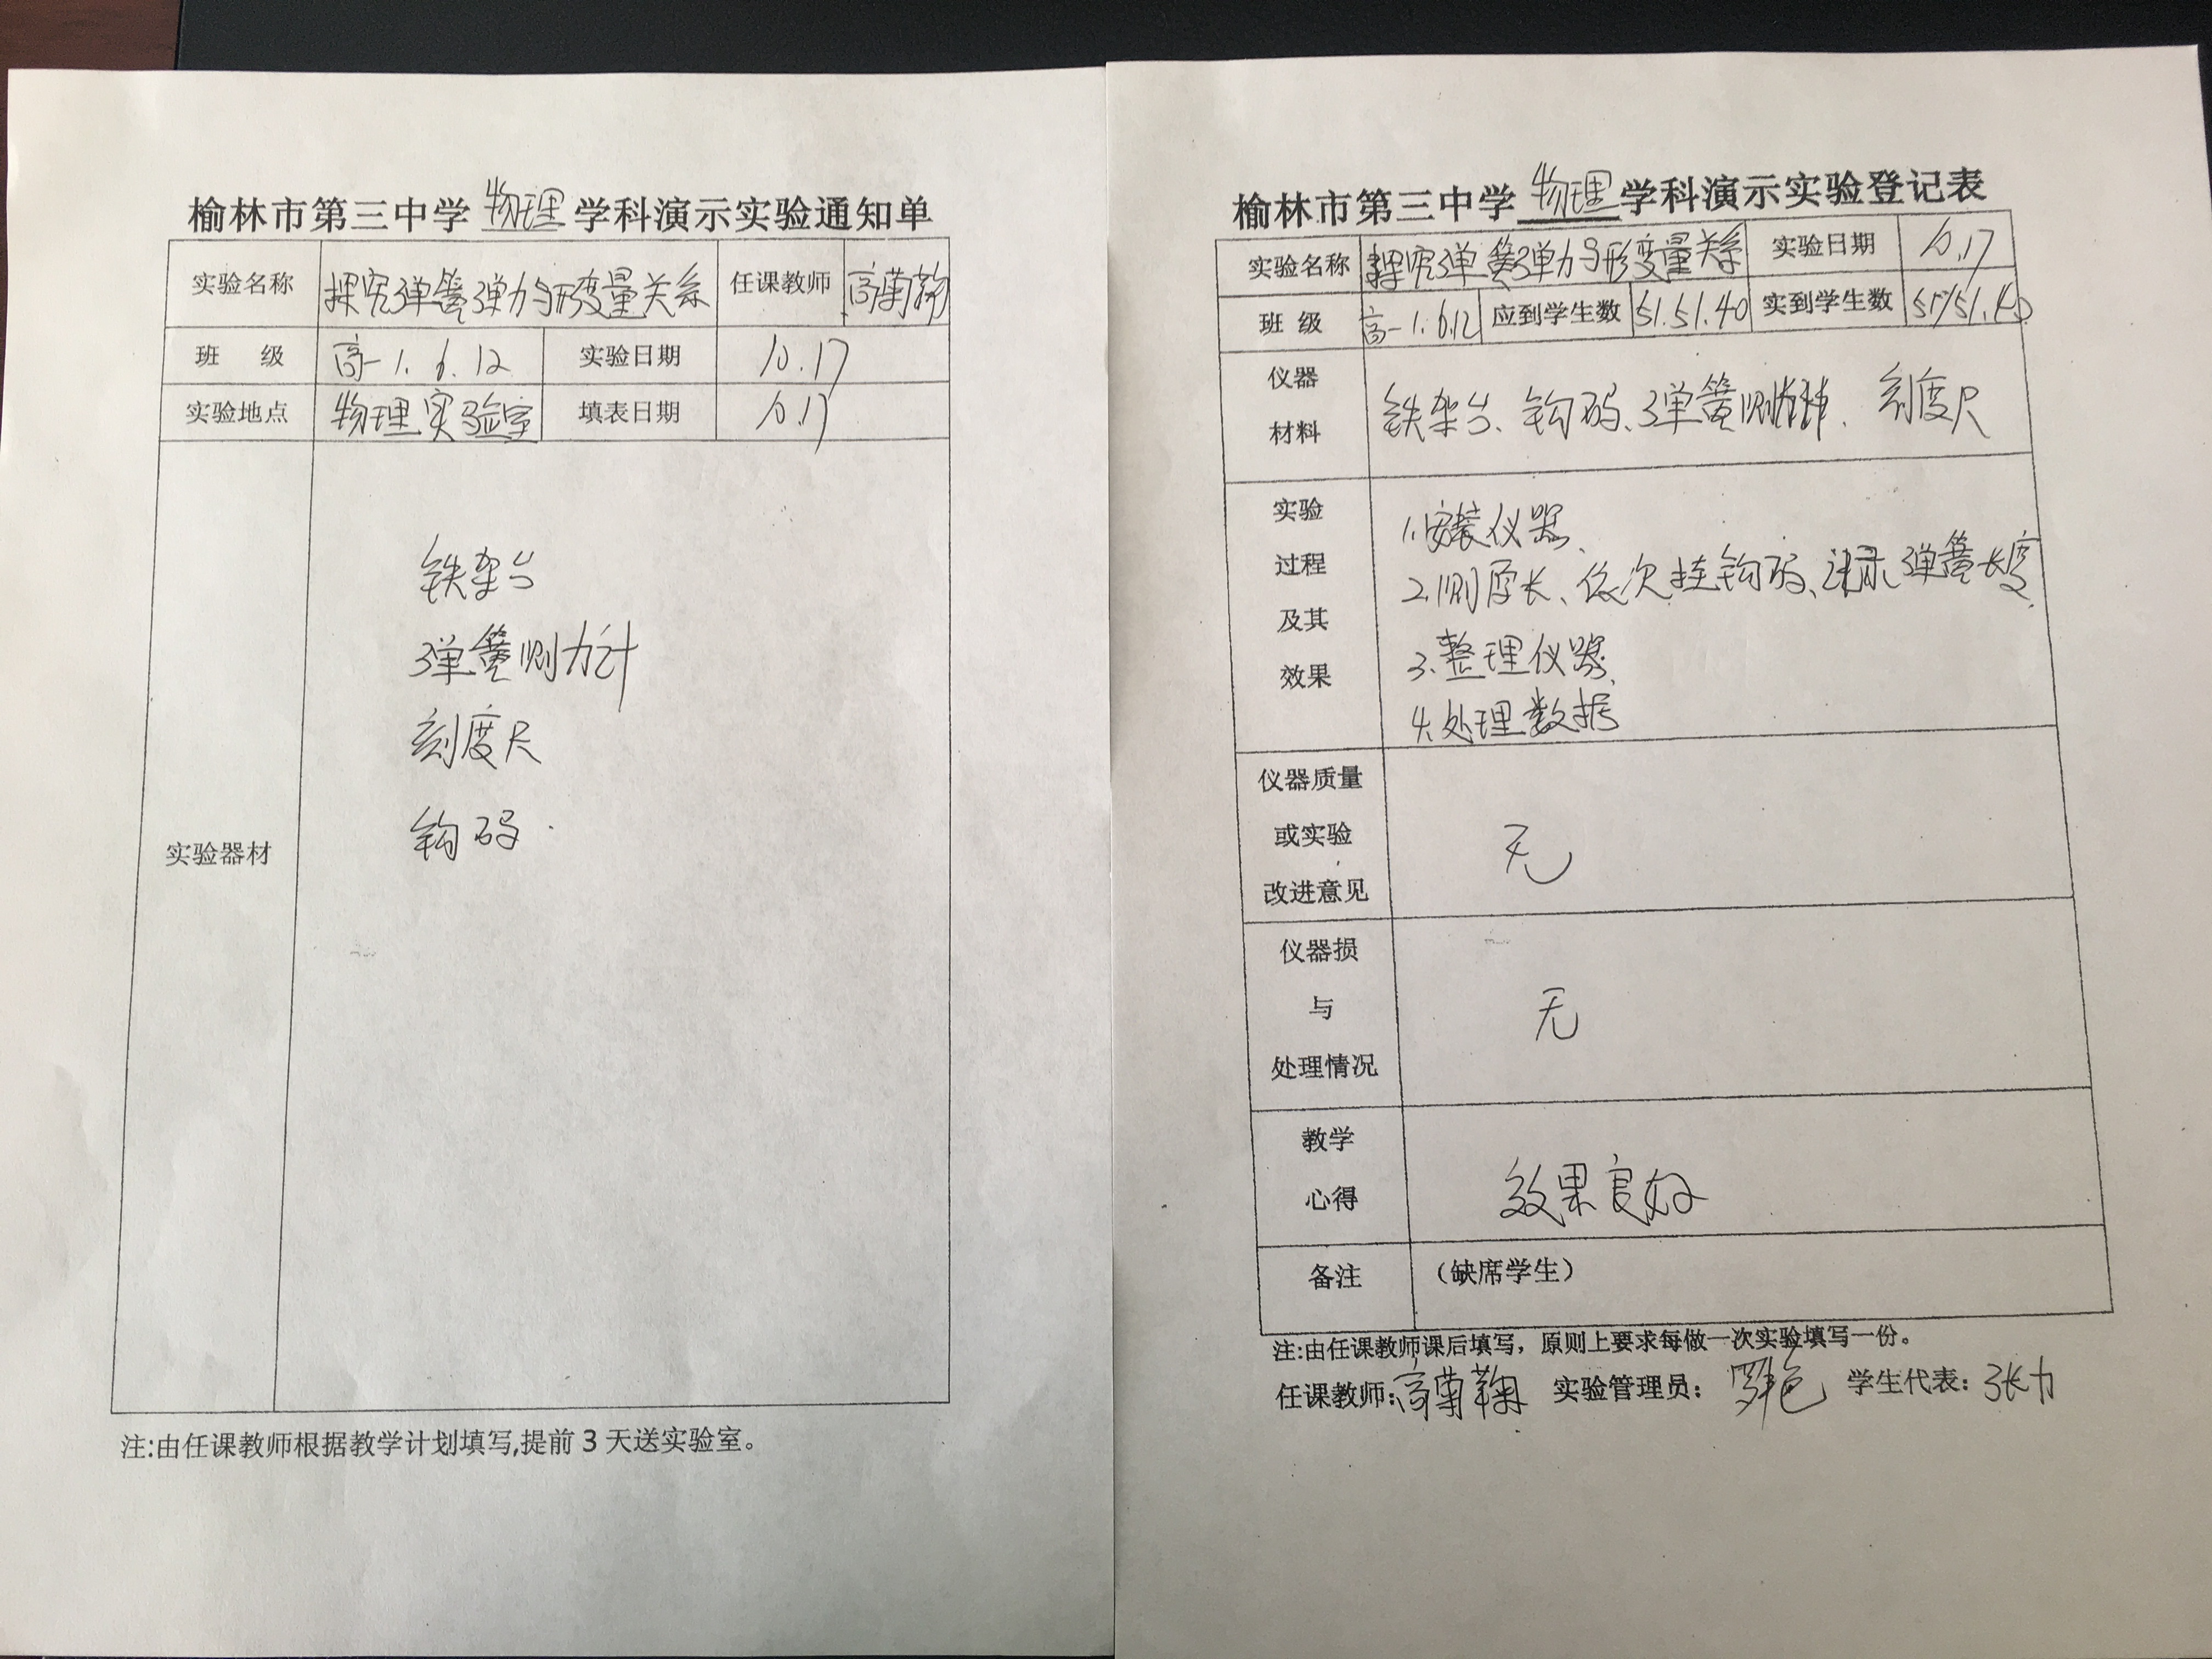 榆林市第三中学 物理 学科演示实验通知单
实验名称 探究弹簧弹力与形变量关系 任课教师 高菊鞠
班 级 高一1.6.12 实验日期 10.17
实验地点 物理实验室 填表日期 10.17
实验器材
铁架台
弹簧测力计
刻度尺
钩码
注:由任课教师根据教学计划填写,提前3天送实验室。
榆林市第三中学 物理 学科演示实验登记表
实验名称 探究弹簧弹力与形变量关系 实验日期 10.17
班 级 高一1.6.12 应到学生数 51.51.40 实到学生数 51.51.40
仪器
材料
铁架台、钩码、弹簧测 刻度尺
实验
过程
及其
效果
1.安装仪器、
2.测原长、依次挂钩码、记录弹簧长度、
3.整理仪器、
4.处理数据
仪器质量
或实验
改进意见
无
仪器损
与
处理情况
无
教学
心得
效果良好
备注 （缺席学生）
注:由任课教师课后填写，原则上要求每做一次实验填写一份。
任课教师:高菊鞠 实验管理员： 学生代表：张力